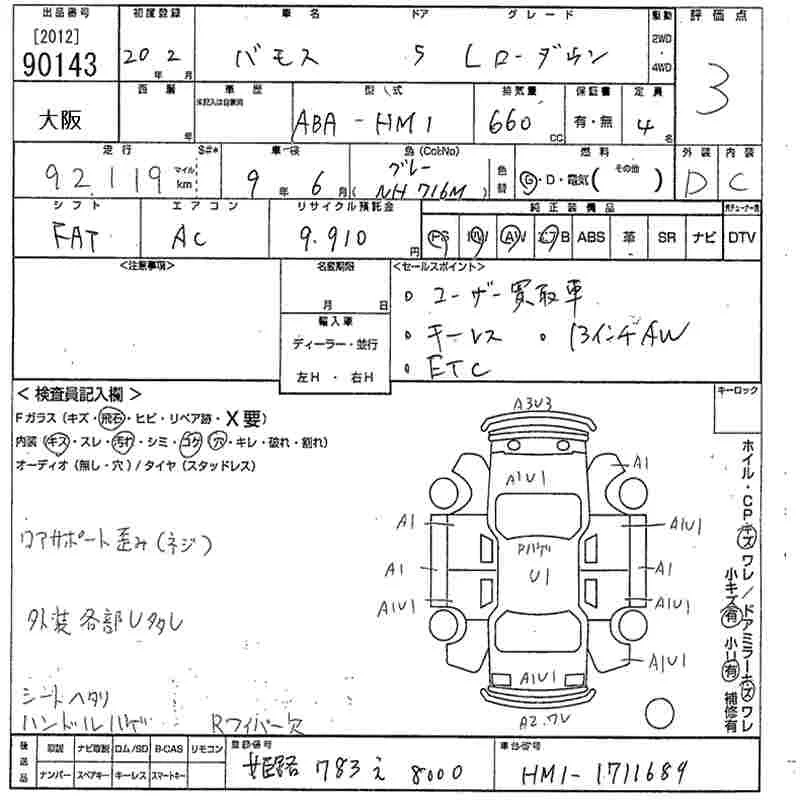 出品番号 初度登録 車名 ドア グレード 駆動 評価点
[2012]
90143
20年 2月 バモス 5 Lローダウン 2WD・4WD 3
大阪
西暦 車歴 型式 排気量 保証書 定員
年 未記入は自家用 ABA-HM1 660cc 有・無 4名
走行 S#* 車検 色(Col.No) 燃料 外装 内装
92,119 マイル km 9年 6月 グレー (NH 716M) 色替 G・D・電気( その他 ) D C
シフト エアコン リサイクル預託金 純正装備品
FAT AC 9,910円 PS PW AW エアB ABS 革 SR ナビ DTV
<注意事項> 名変期限 <セールスポイント>
月 日
輸入車
ディーラー・並行
左H・右H
○ ユーザー買取車
・キーレス ・13インチAW
・ETC
<検査員記入欄> キーロック
Fガラス (キズ・飛石・ヒビ・リペア跡・X要)
内装 (キズ・スレ・汚れ・シミ・コゲ・穴・キレ・破れ・割れ)
オーディオ (無し・穴) / タイヤ (スタッドレス)
ロアサポート歪み(ネジ)
外装 各部U多し
シートヘタリ
ハンドルハゲ Rワイパー欠
A3U3
A1U1 A1
A1 A1U1
U1
A1 A1
A1U1 A1U1
A1U1 A1U1
A2.ワレ
ホイル・CPキズワレ/ドアミラーキズワレ
小キズ有 小U有 補修有
後送品 取説 ナビ取説 ロム/SD B-CAS リモコン 登録番号 車台番号
ナンバー スペアキー キーレス スマートキー 姫路 783 え 8000 HM1-1711689